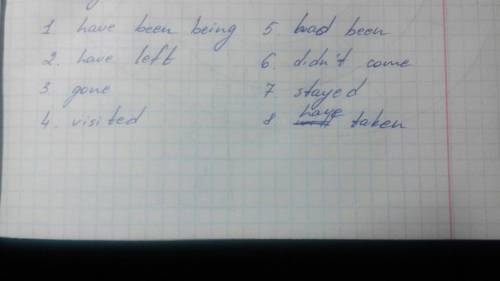 1. have been being
2. have left
3. gone
4. visited
5 had been
6. didn't come
7 stayed
8 have taken